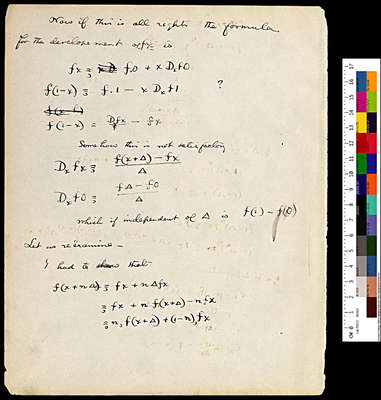 Now if this is all right the formula
for the developement of fx is
fx = f.0 + x Dx f0
f(1-x) = f.1 - x Dx f1 ?
f(1-x) = Dfx - fx
Somehow this is not satisfactory
Dx fx = f(x+Δ) - fx / Δ
Dx f0 = fΔ - f0 / Δ
which if independent of Δ is f(1) - f(0)
Let us reëxamine —
I had to show that
f(x+nΔ) = fx + nΔfx
= fx + n f(x+Δ) - n fx
= n, f(x+Δ) + (1-n), fx